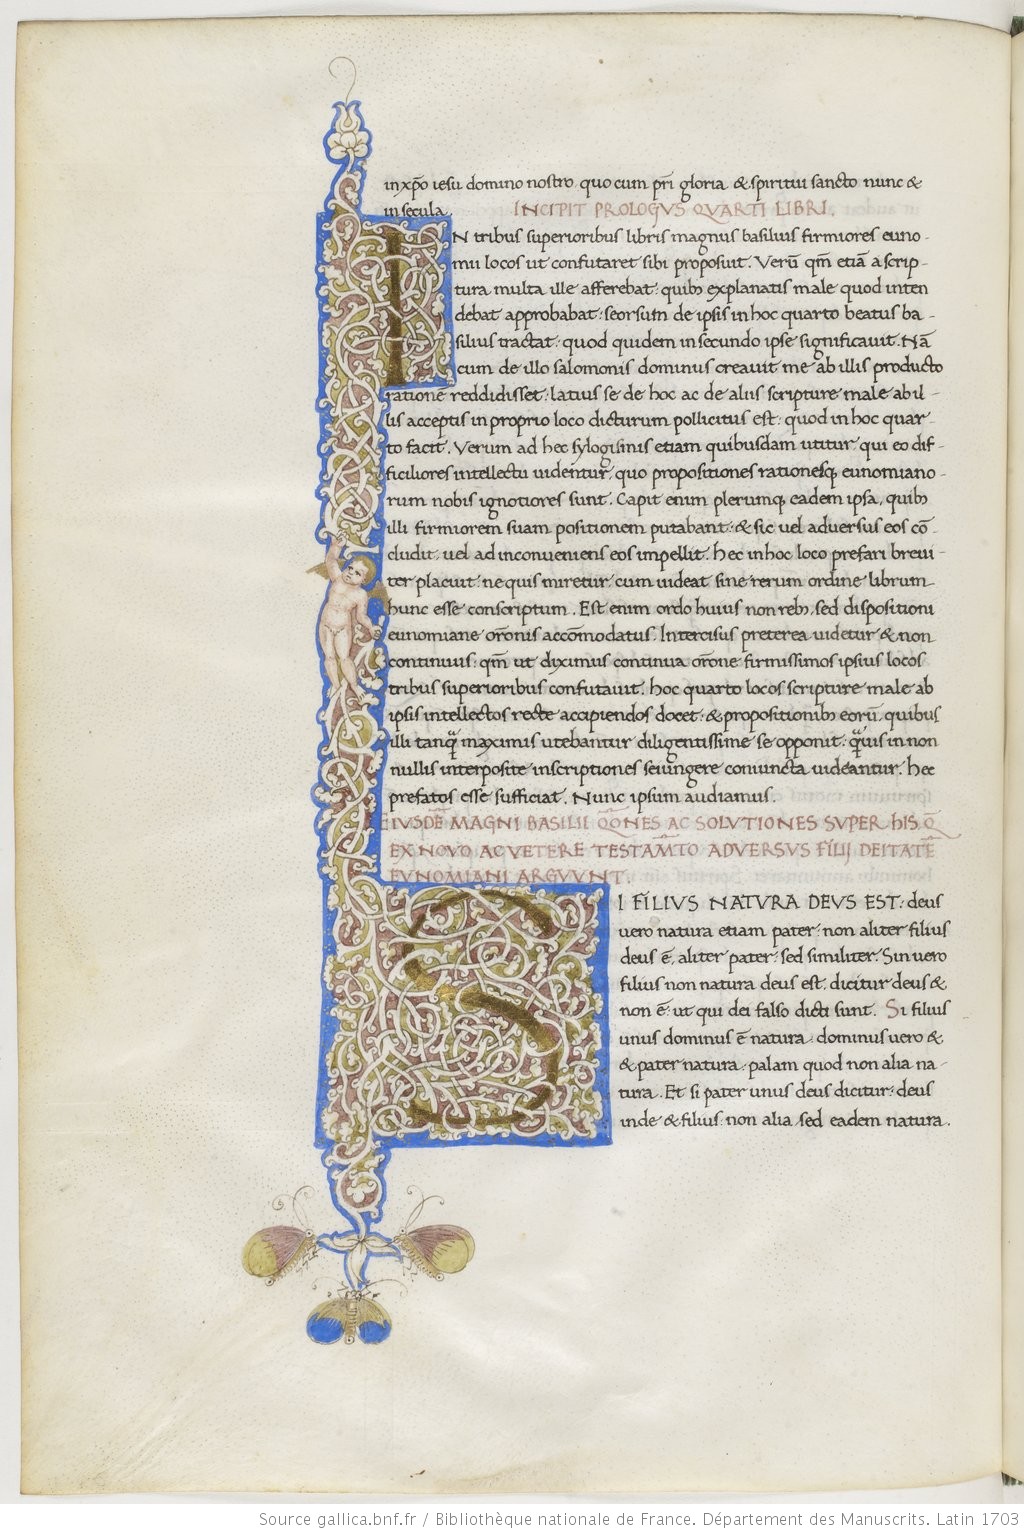 in xp̄o iesu domino nostro. quo cum pr̄i gloria & spiritui sancto nunc &
in secula. INCIPIT PROLOGVS QVARTI LIBRI.
IN tribus superioribus libris magnus basilius firmiores euno-
mii locos ut confutaret sibi proposuit. Verū qm̄ etiā a scrip-
tura multa ille afferebat: quibꝫ explanatis male quod inten
debat approbabat: seorsum de ipsis in hoc quarto beatus ba-
silius tractat: quod quidem in secundo ipse significauit. Nā
cum de illo salomonis dominus creauit me ab illis producto
ratione reddidisset: latius se de hoc ac de aliis scripture male ab il-
lis acceptis in proprio loco dicturum pollicitus est: quod in hoc quar-
to facit. Verum ad hec sylogismis etiam quibusdam utitur qui eo dif-
ficiliores intellectu uidentur, quo propositiones rationesqꝫ eunomiano-
rum nobis ignotiores sunt. Capit enim plerumqꝫ eadem ipsa, quibꝫ
illi firmiorem suam positionem putabant: & sic uel aduersus eos cō-
cludit, uel ad inconueniens eos impellit. Hec in hoc loco prefari breui-
ter placuit: ne quis miretur cum uideat sine rerum ordine librum
hunc esse conscriptum. Est enim ordo huius non rebꝫ, sed dispositioni
eunomiane or̄onis accōmodatus. Intercisus preterea uidetur & non
continuus: qm̄ ut diximus continua or̄one firmissimos ipsius locos
tribus superioribus confutauit. Hoc quarto locos scripture male ab
ipsis intellectos recte accipiendos docet: & propositionibꝫ eorū, quibus
illi tanqᷓ maximis utebantur diligentissime se opponit: qᷓuis in non
nullis interposite inscriptiones seiungere coniuncta uideantur. Hec
prefatos esse sufficiat. Nunc ipsum audiamus.
EIVSDĒ MAGNI BASILII Q̄ONES AC SOLVTIONES SVPER HIS Q̄
EX NOVO AC VETERE TESTAM̄TO ADVERSVS FILII DEITATĒ
EVNOMIANI ARGVVNT.
SI FILIVS NATVRA DEVS EST: deus
vero natura etiam pater: non aliter filius
deus ē, aliter pater: sed similiter. Sin uero
filius non natura deus est, dicitur deus &
non ē: ut qui dei falso dicti sunt. Si filius
unus dominus ē natura: dominus uero &
& pater natura: palam quod non alia na-
tura. Et si pater unus deus dicitur: deus
inde & filius: non alia sed eadem natura.
Source gallica.bnf.fr / Bibliothèque nationale de France. Département des Manuscrits. Latin 1703